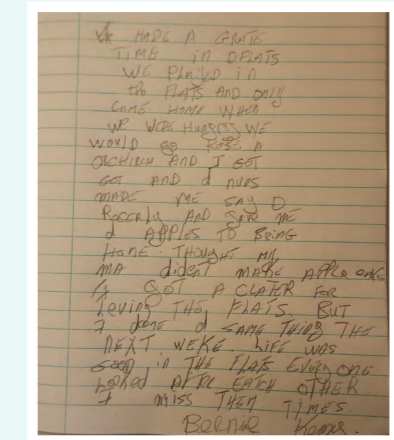 We HADE A GRATE
TIME in D FLATS
WE PLAYED in
the FLATS AND ONLY
CAME HOME WHEN
WE WERE HUNGRY WE
WOULD GO ROBE A
ORCHIRCH AND I GOT
GOT AND d NUNS
MADE ME SAY D
ROCERLY AND GAVE ME
d APPLES TO BEING
HOME. THOUGHT MY
MA dident MAKE APPLE CAKE
I GOT A CLATER FOR
LEVING THE FLATS. BUT
I done d SAME THING THE
NEXT WEKE. LIFE WAS
GOOD in THE FLATS EVERY ONE
LOOKED AFTRE EATCH OTHER
I MISS THEM TIMES.
BERNIE